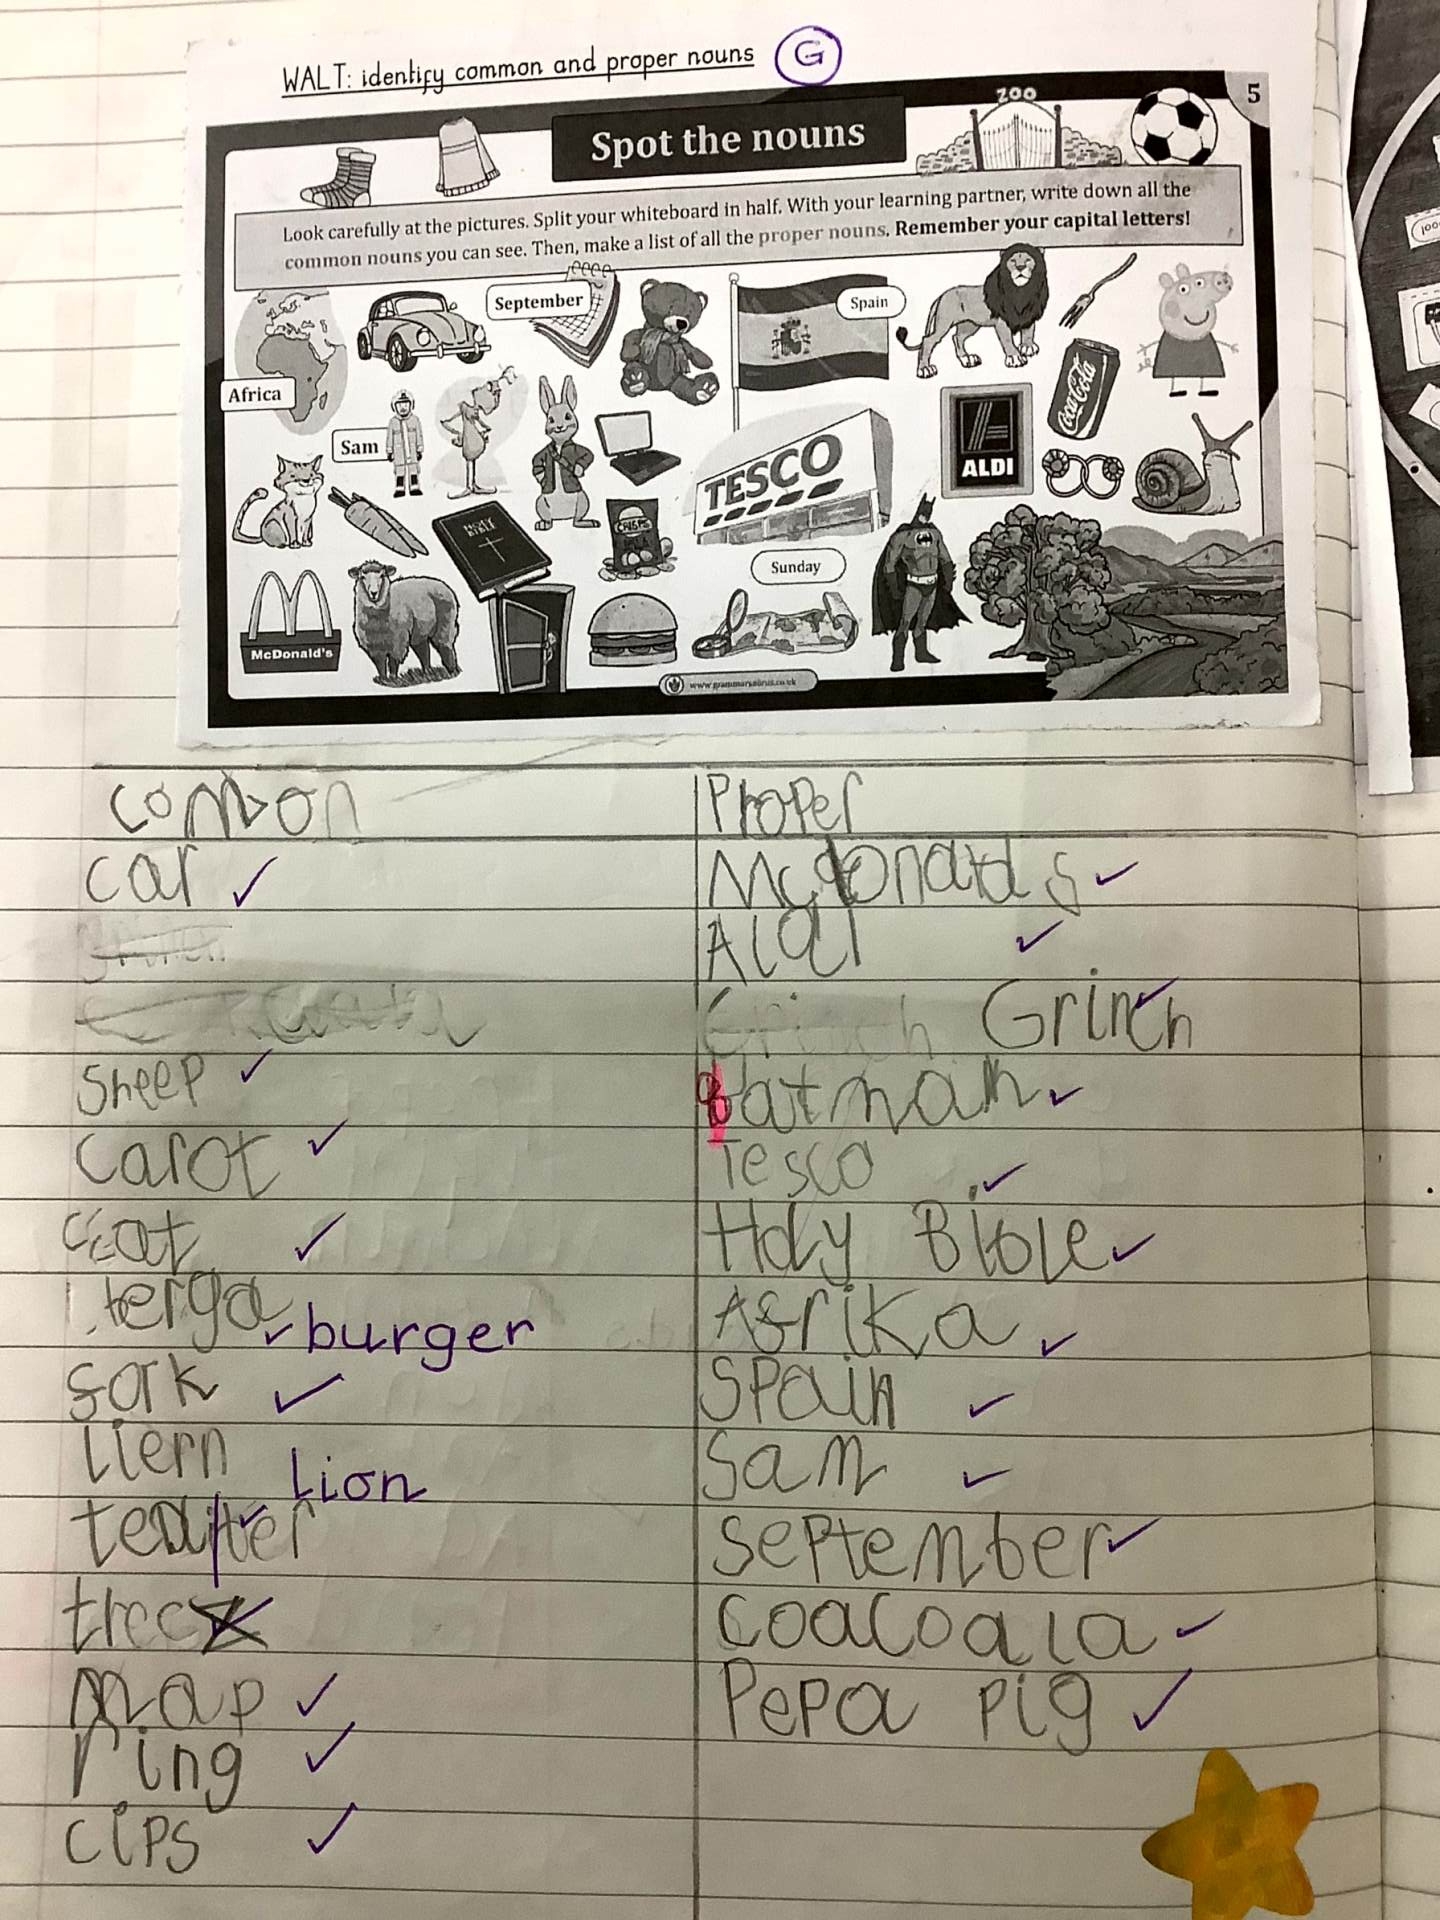 WALT: identify common and proper nouns G
ZOO
5
Spot the nouns
Look carefully at the pictures. Split your whiteboard in half. With your learning partner, write down all the
common nouns you can see. Then, make a list of all the proper nouns. Remember your capital letters!
September
Spain
Africa
Coca-Cola
Sam
TESCO
ALDI
HOLY BIBLE
CRISPS
Sunday
McDonald's
www.grammarsaurus.co.uk
common Proper
car Mcdonalds
Aldi
Grinch Grinch
sheep Batman
carot Tesco
cat Holy Bible
berga burger Afrika
fork Spain
liern Lion Sam
September
tree coacoala
map Pepa pig
ring
cips